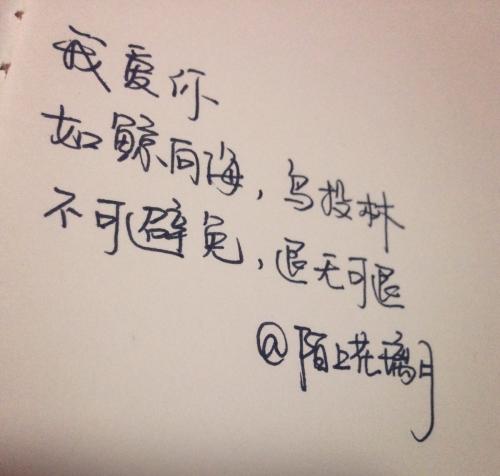 我爱你
如鲸向海，鸟投林
不可避免，退无可退
@陌上花璃月